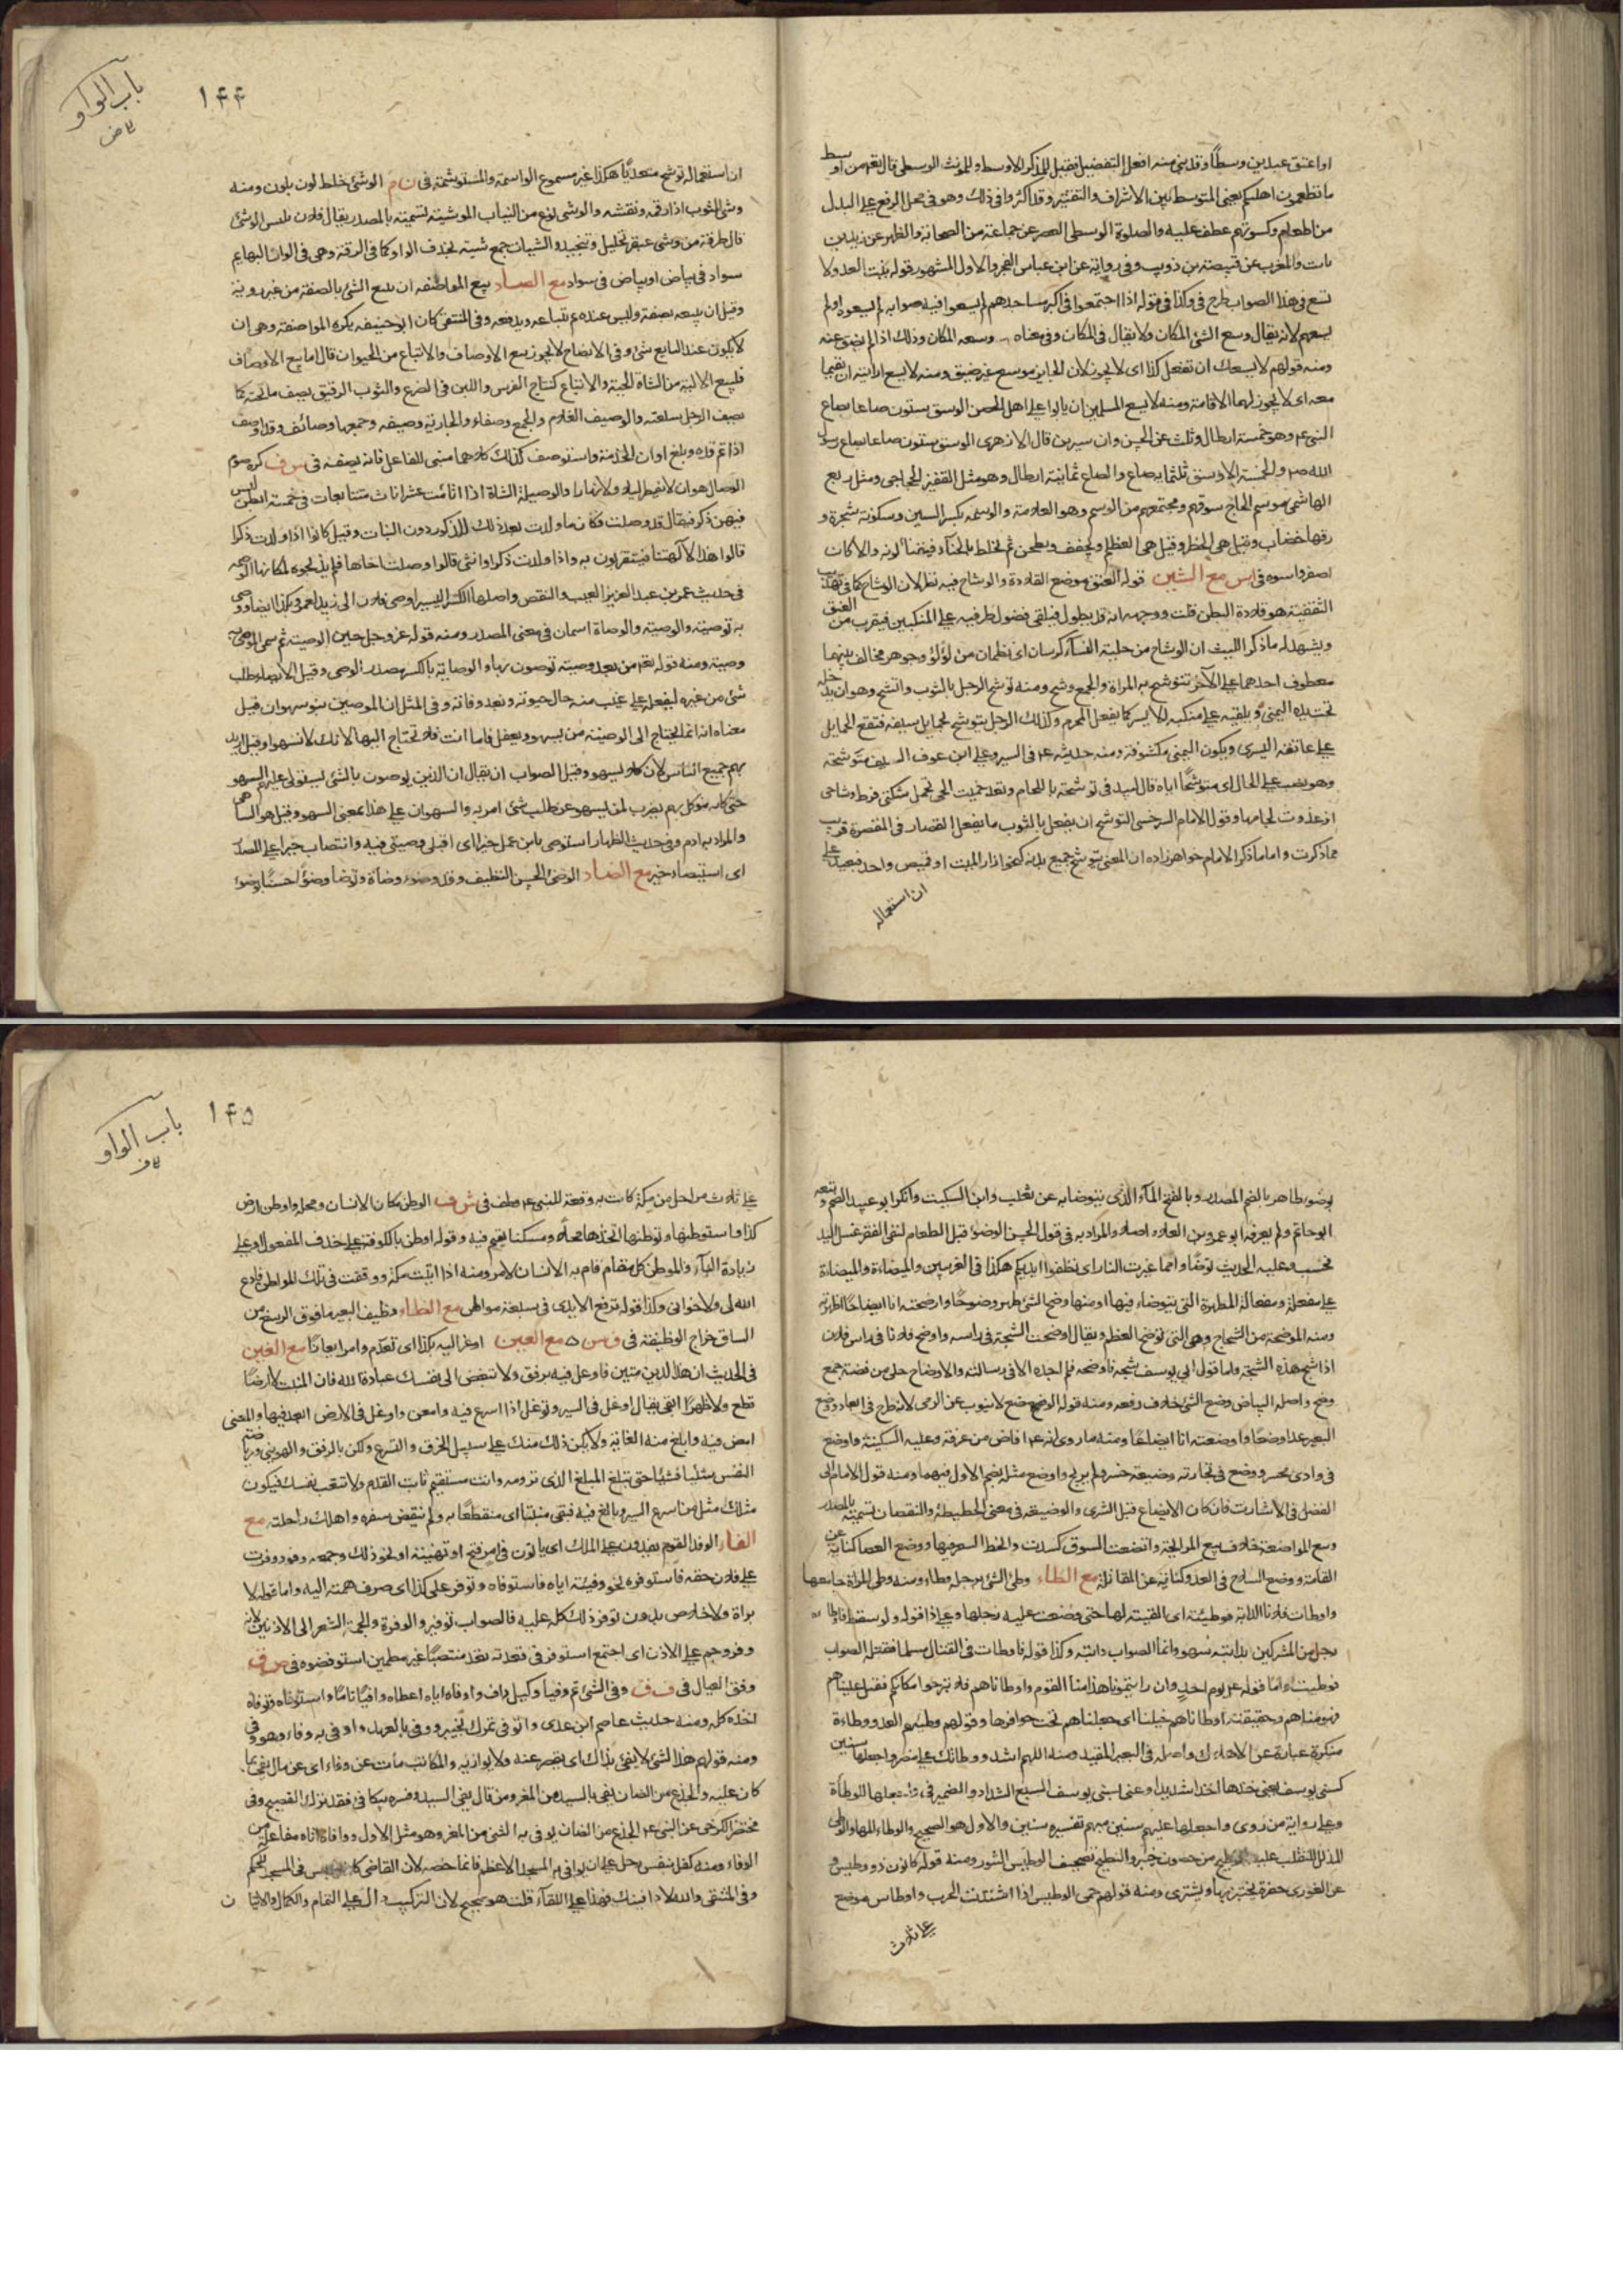 او اعتق عبدين وسطًا وقد بنى منه افعل التفضيل فقيل للمذكر الاوسط وللمونث الوسطى قال تعم من اوسط
ما تطعمون اهليكم يعنى المتوسط بين الاسراف والتقتير وقد اكثروا فى ذلك وهو فى محل الرفع على البدل
من اطعام وكسوتهم عطف عليه والصلوة الوسطى العصر عن جماعة من الصحابة والظهر عن زيد بن
ثابت والمغرب عن قبيصة بن ذويب وفى رواية عن ابن عباس الفجر والاول المشهور قوله بلغت العدو ولا
تسع فى هذا الصواب طرح فى وكذا فى قوله اذا اجتمعوا فى اكبر مساجدهم لم يسعوا فيه صوابه لم يسعوه او لم
يسعهم لانه يقال وسع الشئ المكان ولا يقال فى المكان وفى معناه وسعه المكان وذلك اذا لم يضق عنه
ومنه قولهم لا يسعك ان تفعل كذا اى لا يجوز لان الجايز موسع غير ضيق ومنه لا يسع امراتيه ان يقيما
معه اى لا يجوز لهما الاقامة ومنه لا يسع المسلمين ان يابوا على اهل الحصن الوسق ستون صاعا بصاع
النبى عم وهو خمسة ارطال وثلث عن الحسن وابن سيرين قال الازهرى الوسق ستون صاعا بصاع رسول
الله صم والخمسة الاوسق ثلثماية صاع والصاع ثمانية ارطال وهو مثل القفيز الحجاجى ومثل ربع
الهاشمى موسم الحاج سوقهم ومجتمعهم من الوسم وهو العلامة والوسمة بكسر السين وسكونه شجرة و
رقها خضاب وقيل هى الخطر وقيل هى العظلم يجفف ويطحن ثم يخلط بالحناء فيقنأ لونه والا كان
اصفر واسوه فى اس مع الشين قوله العنق موضع القلادة والوشاح فيه نظر لان الوشاح كما فى تهذيب
الثقفية هو قلادة البطن قلت ووجهه انه قد يطول فيلقى فضول طرفيه على المنكبين فيقرب من العنق
ويشهد له ما ذكر الليث ان الوشاح من حلية النساء كرسان اى نظمان من لؤلؤ وجوهر مخالف بينهما
معطوف احدهما على الآخر تتوشح به المراة والجمع وشح ومنه توشح الرجل بالثوب واتشح وهو ان يدخله
تحت يده اليمنى ويلقيه على منكبه الايسر كما يفعل المحرم وكذلك الرجل يتوشح بحمايل سيفه فتقع الحمايل
على عاتقه اليسرى ويكون اليمنى مكشوفة ومنه حديثه عم فى السير وعلى ابن عوف السيف متوشحه
وهو نصب على الحال اى متوشحًا اياه قال لبيد فى توشحته باللجام ولقد حميت الحى تحمل شكتى فرط وشاحى
اذ غدوت لجامها وقول الامام السرخسى التوشح ان يفعل بالثوب ما يفعل القصار فى المقصرة قريب
مما ذكرت واما ما ذكر الامام خواهر زاده ان المعنى يتوشح جميع بدنه كنحو ازار الميت او قميص واحد فبعيد على
ان استعماله
باب الواو
و ض
۱۴۴
ان استعماله توشح متعديًا هكذا غير مسموع الواسمة والمستوشمة فى ن م الوشى خلط لون بلون ومنه
وشى الثوب اذا رقمه ونقشه والوشى نوع من الثياب الموشية تسمية بالمصدر يقال فلان يلبس الوشى
قال طرفة من وشى عبقر تجليل وتنجيد والشيات جمع شية بحذف الواو كما فى الرقة وهى فى الوان البهايم
سواد فى بياض او بياض فى سواد مع الصاد بيع المواصفة ان يبيع الشئ بالصفة من غير روية
وقيل ان يبيعه بصفة وليس عنده ثم يبتاعه ويدفعه وفى المنتقى كان ابو حنيفه يكره المواصفة وهى ان
لا يكون عند البايع شئ وفى الايضاح لا يجوز بيع الاوصاف والاتباع من الحيوان قال اما بيع الاوصاف
فلبيع الالية من الشاة الحية والاتباع كنتاج الفرس واللبن فى الضرع والثوب الرقيق يصف ما تحته كما
يصف الرجل سلعته والوصيف الغلام والجمع وصفاء والجارية وصيفه وجمعها وصائف وقد اوصف
اذا تم قده وبلغ اوان الخدمة واستوصف كذلك كلاهما مبنى للفاعل فانه يصفه فى س ف كره صوم
الوصال هو ان لا يفطر ليلا ولا نهارا والوصيلة الشاة اذا اتأمت عشر اناث متتابعات فى خمسة ابطن ليس
فيهن ذكر فيقال قد وصلت فكان ما ولدت بعد ذلك للذكور دون البنات وقيل كانوا اذا ولدت ذكرا
قالوا هذا لآلهتنا فيتقربون به واذا ولدت ذكرا وانثى قالوا وصلت اخاها فلم يذبحوه لمكانها الوصم
فى حديث عمر بن عبد العزيز العيب والنقص واصلها الكسر اليسير اوصى فلان الى زيد لعمرو بكذا ايصاء ووصى
به توصية والوصية والوصاة اسمان فى معنى المصدر ومنه قوله عز وجل حين الوصية ثم سمى الموصى به
وصية ومنه قوله تعم من بعد وصية توصون بها والوصاية بالكسر مصدر الوصى وقيل الايصاء طلب
شئ من غيره ليفعله على غيب منه حال حيوته وبعد وفاته وفى المثل ان الموصين بنو سهوان قيل
معناه انه انما يحتاج الى الوصية من يسهو ويغفل فاما انت فلا تحتاج اليها لانك لا تسهو وقيل اريد
بهم جميع الناس لان كلا يسهو وقيل الصواب ان يقال ان الذين يوصون بالشئ يستولى عليهم السهو
حتى كانه موكل بهم يضرب لمن يسهو عن طلب شئ امر به والسهوان على هذا بمعنى السهو وقيل هو الساهى
والمراد به ادم وفى حديث الظهار استوصى بابن عمك خيرا اى اقبلى وصيتى فيه وانتصاب خيرا على المصدر
اى استيصاء خير مع الضاد الوضى الحسن النظيف وقد وضوء وضاة وتوضا وضوًا حسنًا بوضوء
بوضوء طاهر بالضم المصدر وبالفتح الماء الذى يتوضا به عن ثعلب وابن السكيت وانكر ابو عبيد الضم وتبعه
ابو حاتم ولم يعرفه ابو عمرو بن العلاء اصلا والمراد به فى قول الحسن الوضوء قبل الطعام لنفى الفقر غسل اليد
فحسب وعليه الحديث توضاوا مما غيرت النار اى نظفوا ايديكم هكذا فى الغريبين والميضاءة والميضاة
على مفعلة ومفعالة المطهرة التى يتوضاء فيها او منها وضح الشئ ظهر وضوحًا واوضحته انا ايضاحًا اظهرته
ومنه الموضحة من الشجاج وهى التى توضح العظم ويقال اوضحت الشجة فى راسه واوضح فلانا فى راس فلان
اذا شج هذه الشجة واما قول ابى يوسف شجه فاوضحه فلم اجده الا فى رسالته والاوضاح حلى من فضة جمع
وضح واصله البياض وضع الشئ خلاف رفعه ومنه قوله الوضع موضع لا ينوب عن الرمى لانه طرح فى ابعاد ووضع
البعير عدا وضعًا واوضعته انا ايضاعًا ومنه ما روى انه عم افاض من عرفة وعليه السكينة واوضع
فى وادى محسر ووضع فى تجارته وضيعة خسر ولم يربح واوضع مثله بضم الاول فيهما ومنه قول الامام ابى
الفضل فى الاشارت فان كان الايضاع قبل الشرى والوضيعة فى معنى الحطيطة والنقصان تسمية بالمصدر
وبيع المواضعة خلاف بيع المرابحة واتضعت السوق كسدت وانحط السعر فيها ووضع العصا كناية عن
الاقامة ووضع السلاح فى العدو كناية عن المقاتلة مع الطاء وطى الشئ برجله وطاء ومنه وطى المراة جامعها
واوطات فلانا الدابة فوطيته اى القيته لها حتى وضعت عليه رجلها وعلى ذا قوله ولو سقط فاوطا
رجل من المشركين بدابته سهو وانما الصواب دابته وكذا قوله فاوطات فى القتال مسلما فقتله الصواب
فوطيت واما قوله عم يوم احد وان رايتمونا هزمنا القوم واوطاناهم فلا تبرحوا مكانكم فقيل غلبناهم
وهزمناهم وحقيقته اوطاناهم خيلنا اى جعلناهم تحت حوافرها وقولهم وطيهم العدو وطاءة
منكرة عبارة عن الاهلاك واصله فى البعير المقيد ومنه اللهم اشدد وطاتك على مضر واجعلها سنين
كسنى يوسف يعنى خذها اخذا شديدا وعنى بسنى يوسف السبع الشداد والضمير فى واجعلها للوطاة
وعلى رواية من روى واجعلها عليهم سنين مبهم تفسيره سنين والاول هو الصحيح والوطاء المهاد الوطى
المذلل للتقلب عليه الوطيح من حصون خيبر والنطيح تصحيف الوطيس التنور ومنه قوله كانون ذو وطيس و
عن الغورى حفرة يختبز بها ويشترى ومنه قولهم حمى الوطيس اذا اشتدت الحرب واوطاس موضع
على ثلاث
باب الواو
و ف
۱۴۵
على ثلاث مراحل من مكة كانت به وقعة للنبى عم وطف فى ش ف الوطن مكان الانسان ومحله واوطن ارض
كذا واستوطنها وتوطنها اتخذها محلًا ومسكنا يقيم فيه وقوله اوطن بالكوفة على حذف المفعول او على
زيادة الباء والموطن كل مقام قام به الانسان لامر ومنه اذا اتيت مكة ووقفت فى تلك المواطن فادع
الله لى ولاخوانى وكذا قوله ترفع الايدى فى سبعة مواطن مع الظاء وظيف البعير ما فوق الرسغ من
الساق خراج الوظيفة فى ق س ه مع العين اوعز اليه بكذا اى تقدم وامر ايعازًا مع الغين
فى الحديث ان هذا الدين متين فاوغل فيه برفق ولا تبغض الى نفسك عبادة الله فان المنبت لا ارضًا
قطع ولا ظهرًا ابقى يقال اوغل فى السير وتوغل اذا اسرع فيه وامعن واوغل فى الارض ابعد فيها والمعنى
امض فيه وابلغ منه الغاية ولا يكن ذلك منك على سبيل الخرق والتسرع ولكن بالرفق والهوينى ورياضة
النفس شيئًا فشيئًا حتى تبلغ المبلغ الذى ترومه وانت مستقيم ثابت القدم ولا تتعب نفسك فيكون
مثلك مثل من اسرع السير وبالغ فيه فبقى منبتًا اى منقطعًا به ولم ينقض سفره واهلك راحلته مع
الفاء الوفد القوم يفدون على الملك اى ياتون فى امر فتح او تهنية او نحو ذلك وجمعه وفود وفرت
على فلان حقه فاستوفره نحو وفيته اياه فاستوفاه وتوفر على كذا اى صرف همته اليه واما قوله لا
براة ولا خلاص بدون توفر ذلك كله عليه فالصواب توفير والوفرة والجمة الشعر الى الاذنين لانه
وفر وجم على الاذن اى اجتمع استوفز فى قعدته قعد منتصبًا غير مطمئن استوفضوه فى ص ف
وفق العيال فى ف ق وفى الشئ تم وفيا وكيل واف واوفاه اياه اعطاه وافيًا تامًا واستوفاه وتوفاه
اخذه كله ومنه حديث عاصم ابن عدى واتوفى تمرك بخيبر ووفى بالعهد واوفى به وفاء وهو وفى
ومنه قولهم هذا الشئ لا يفى بذاك اى يقصر عنه ولا يوازيه والمكاتب مات عن وفاء اى عن مال يفى بما
كان عليه والجذع من الضان يفى بالسيد من المغز ومن قال يفى السيد وفسره بيكافى فقد ترك الفصيح وفى
مختصر الكرخى عن النبى عم الجذع من الضان يوفى به الثنى من المغز وهو مثل الاول ووافاه اتاه مفاعلة من
الوفاء ومنه كفل بنفس رجل على ان يوافى به المسجد الاعظم فانما خصه لان القاضى كان يجلس فى المسجد للحكم
وفى المنتقى والله لاوافينك فهذا على اللقاء قلت هو صحيح لان التركيب دال على التمام والكمال والاتيان